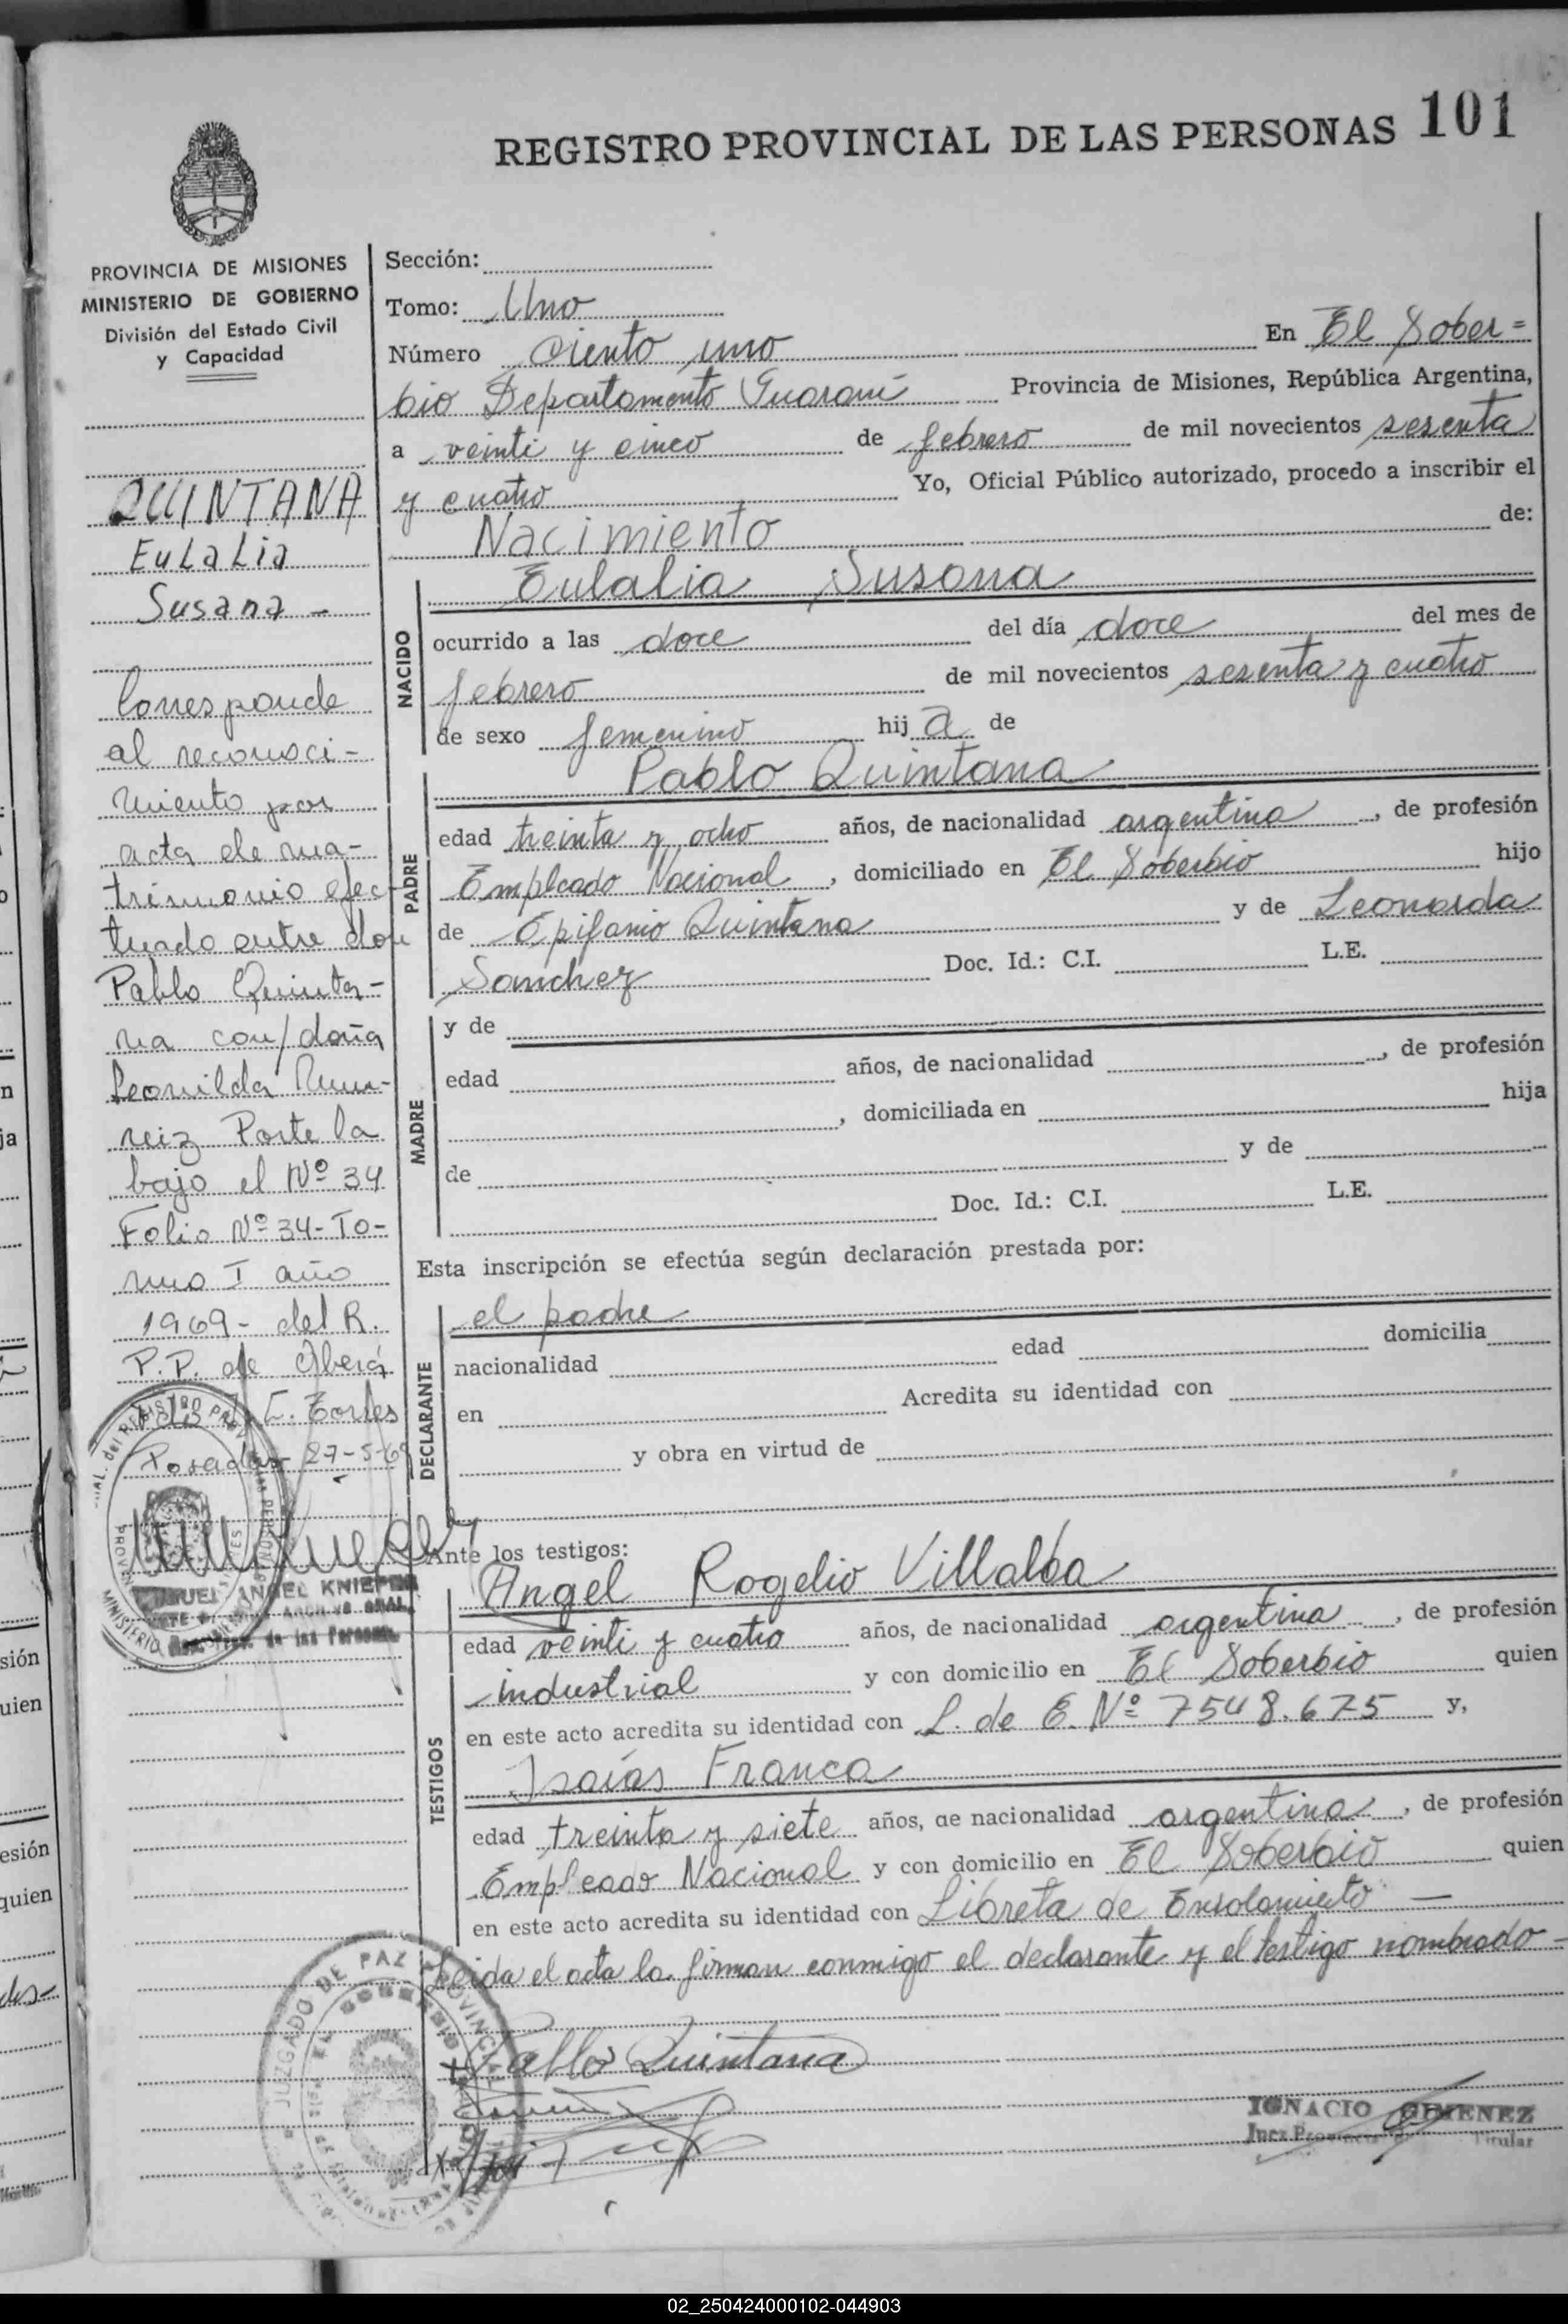 REGISTRO PROVINCIAL DE LAS PERSONAS 101
PROVINCIA DE MISIONES
MINISTERIO DE GOBIERNO
División del Estado Civil
y Capacidad
QUINTANA
Eulalia
Susana -
Corresponde
al reconoci-
miento por
acta de ma-
trimonio efec-
tuado entre don
Pablo Quinta-
na con/doña
Leonilda
reiz Portela
bajo el Nº 34
Folio Nº 34- To-
mo I año
1969- del R.
P.P. de Oberá
Torres
Posadas 27-5-69
MIGUEL ANGEL KNIEPER
Sección:
Tomo: Uno
Número ciento uno En El Sober=
bio Departamento Guaraní Provincia de Misiones, República Argentina,
a veinti y cinco de febrero de mil novecientos sesenta
y cuatro Yo, Oficial Público autorizado, procedo a inscribir el
Nacimiento de:
NACIDO
Eulalia Susana
ocurrido a las doce del día doce del mes de
febrero de mil novecientos sesenta y cuatro
de sexo femenino hij a de
PADRE
Pablo Quintana
edad treinta y ocho años, de nacionalidad argentina, de profesión
Empleado Nacional, domiciliado en El Soberbio hijo
de Epifanio Quintana y de Leonarda
Sanchez Doc. Id.: C.I. L.E.
MADRE
y de
edad años, de nacionalidad , de profesión
, domiciliada en hija
de y de
Doc. Id.: C.I. L.E.
Esta inscripción se efectúa según declaración prestada por:
DECLARANTE
el padre
nacionalidad edad domicilia
en Acredita su identidad con
y obra en virtud de
Ante los testigos:
TESTIGOS
Angel Rogelio Villalba
edad veinti y cuatro años, de nacionalidad argentina, de profesión
industrial y con domicilio en El Soberbio quien
en este acto acredita su identidad con L. de E. Nº 7548.675 y,
Isaías Franca
edad treinta y siete años, de nacionalidad argentina, de profesión
Empleado Nacional y con domicilio en El Soberbio quien
en este acto acredita su identidad con Libreta de Enrolamiento —
Leida el acta la firman conmigo el declarante y el testigo nombrado-
Pablo Quintana
JUZGADO DE PAZ
IGNACIO GIMENEZ
Juez Titular
02_250424000102-044903